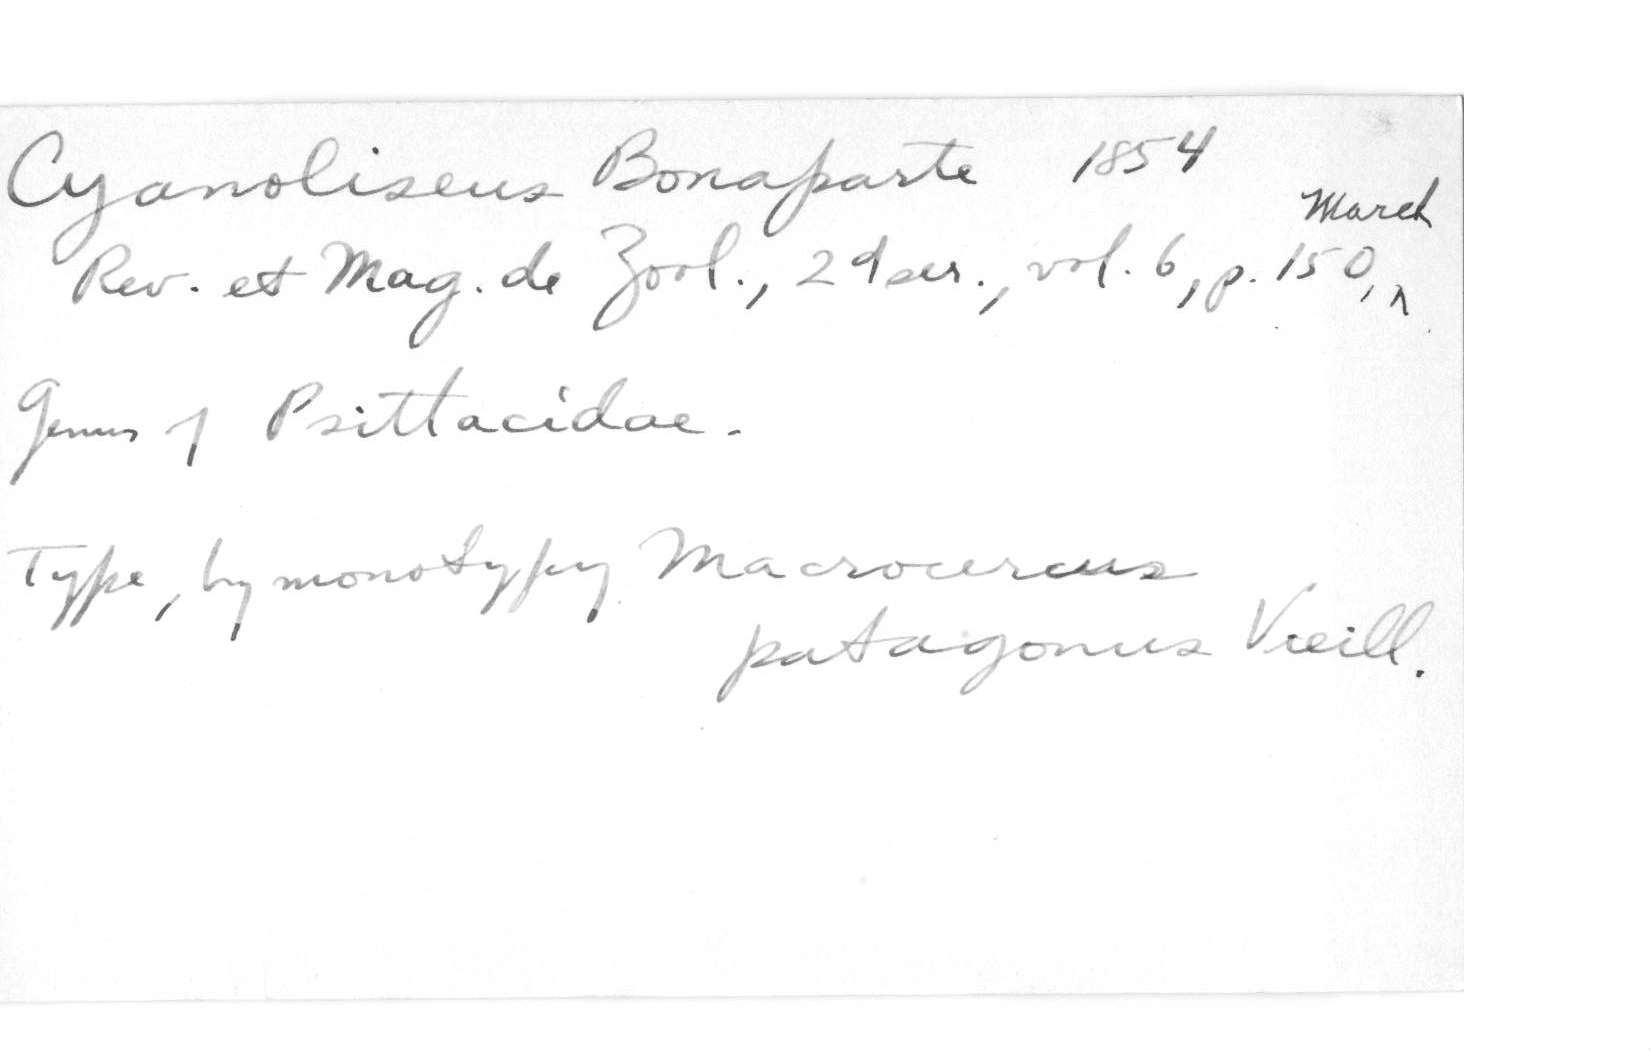 Cyanoliseus Bonaparte 1854
Rev. et Mag. de Zool., 2d ser., vol. 6, p. 150, March
Genus of Psittacidae.
Type, by monotypy Macrocercus
patagonus Vieill.